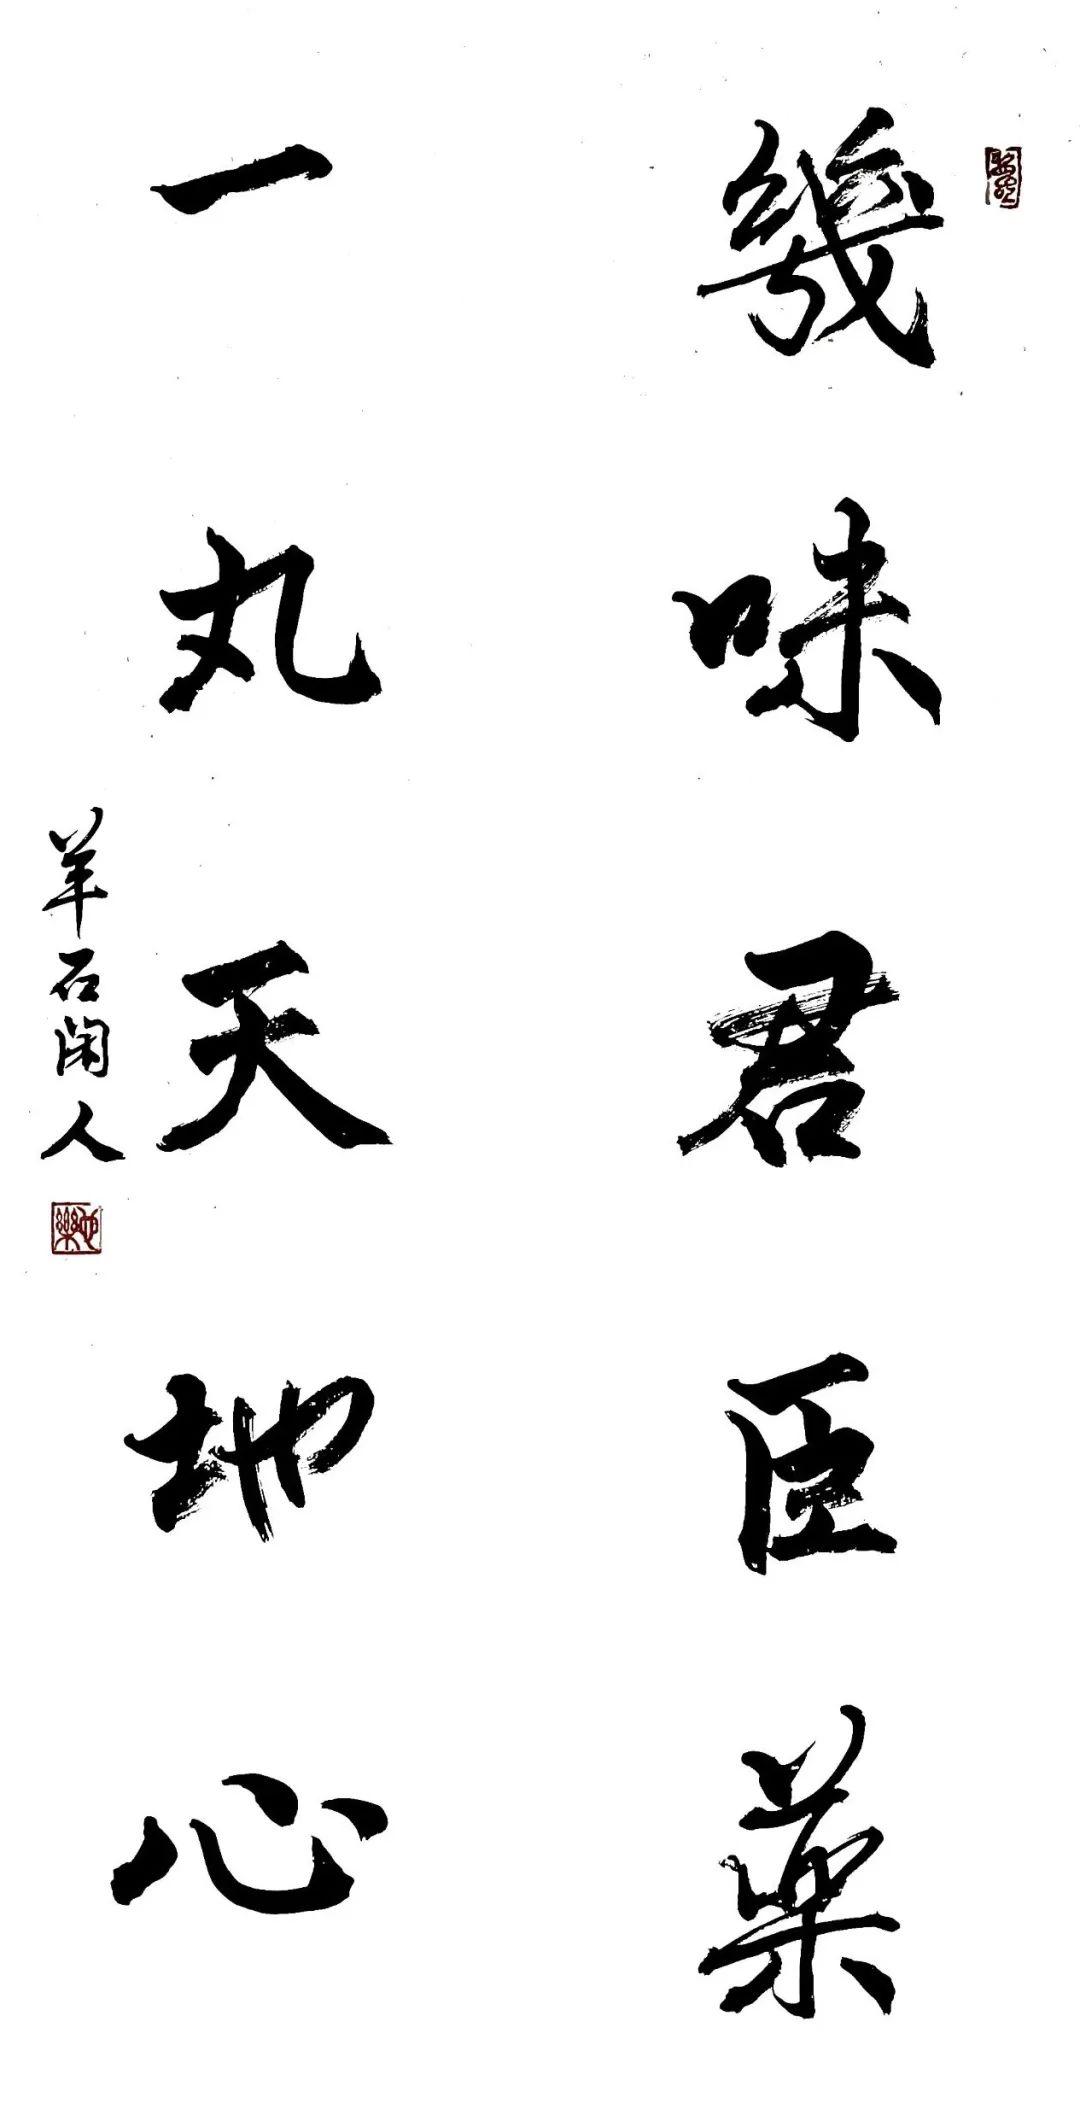 幾味君臣藥
一丸天地心
羊石閑人